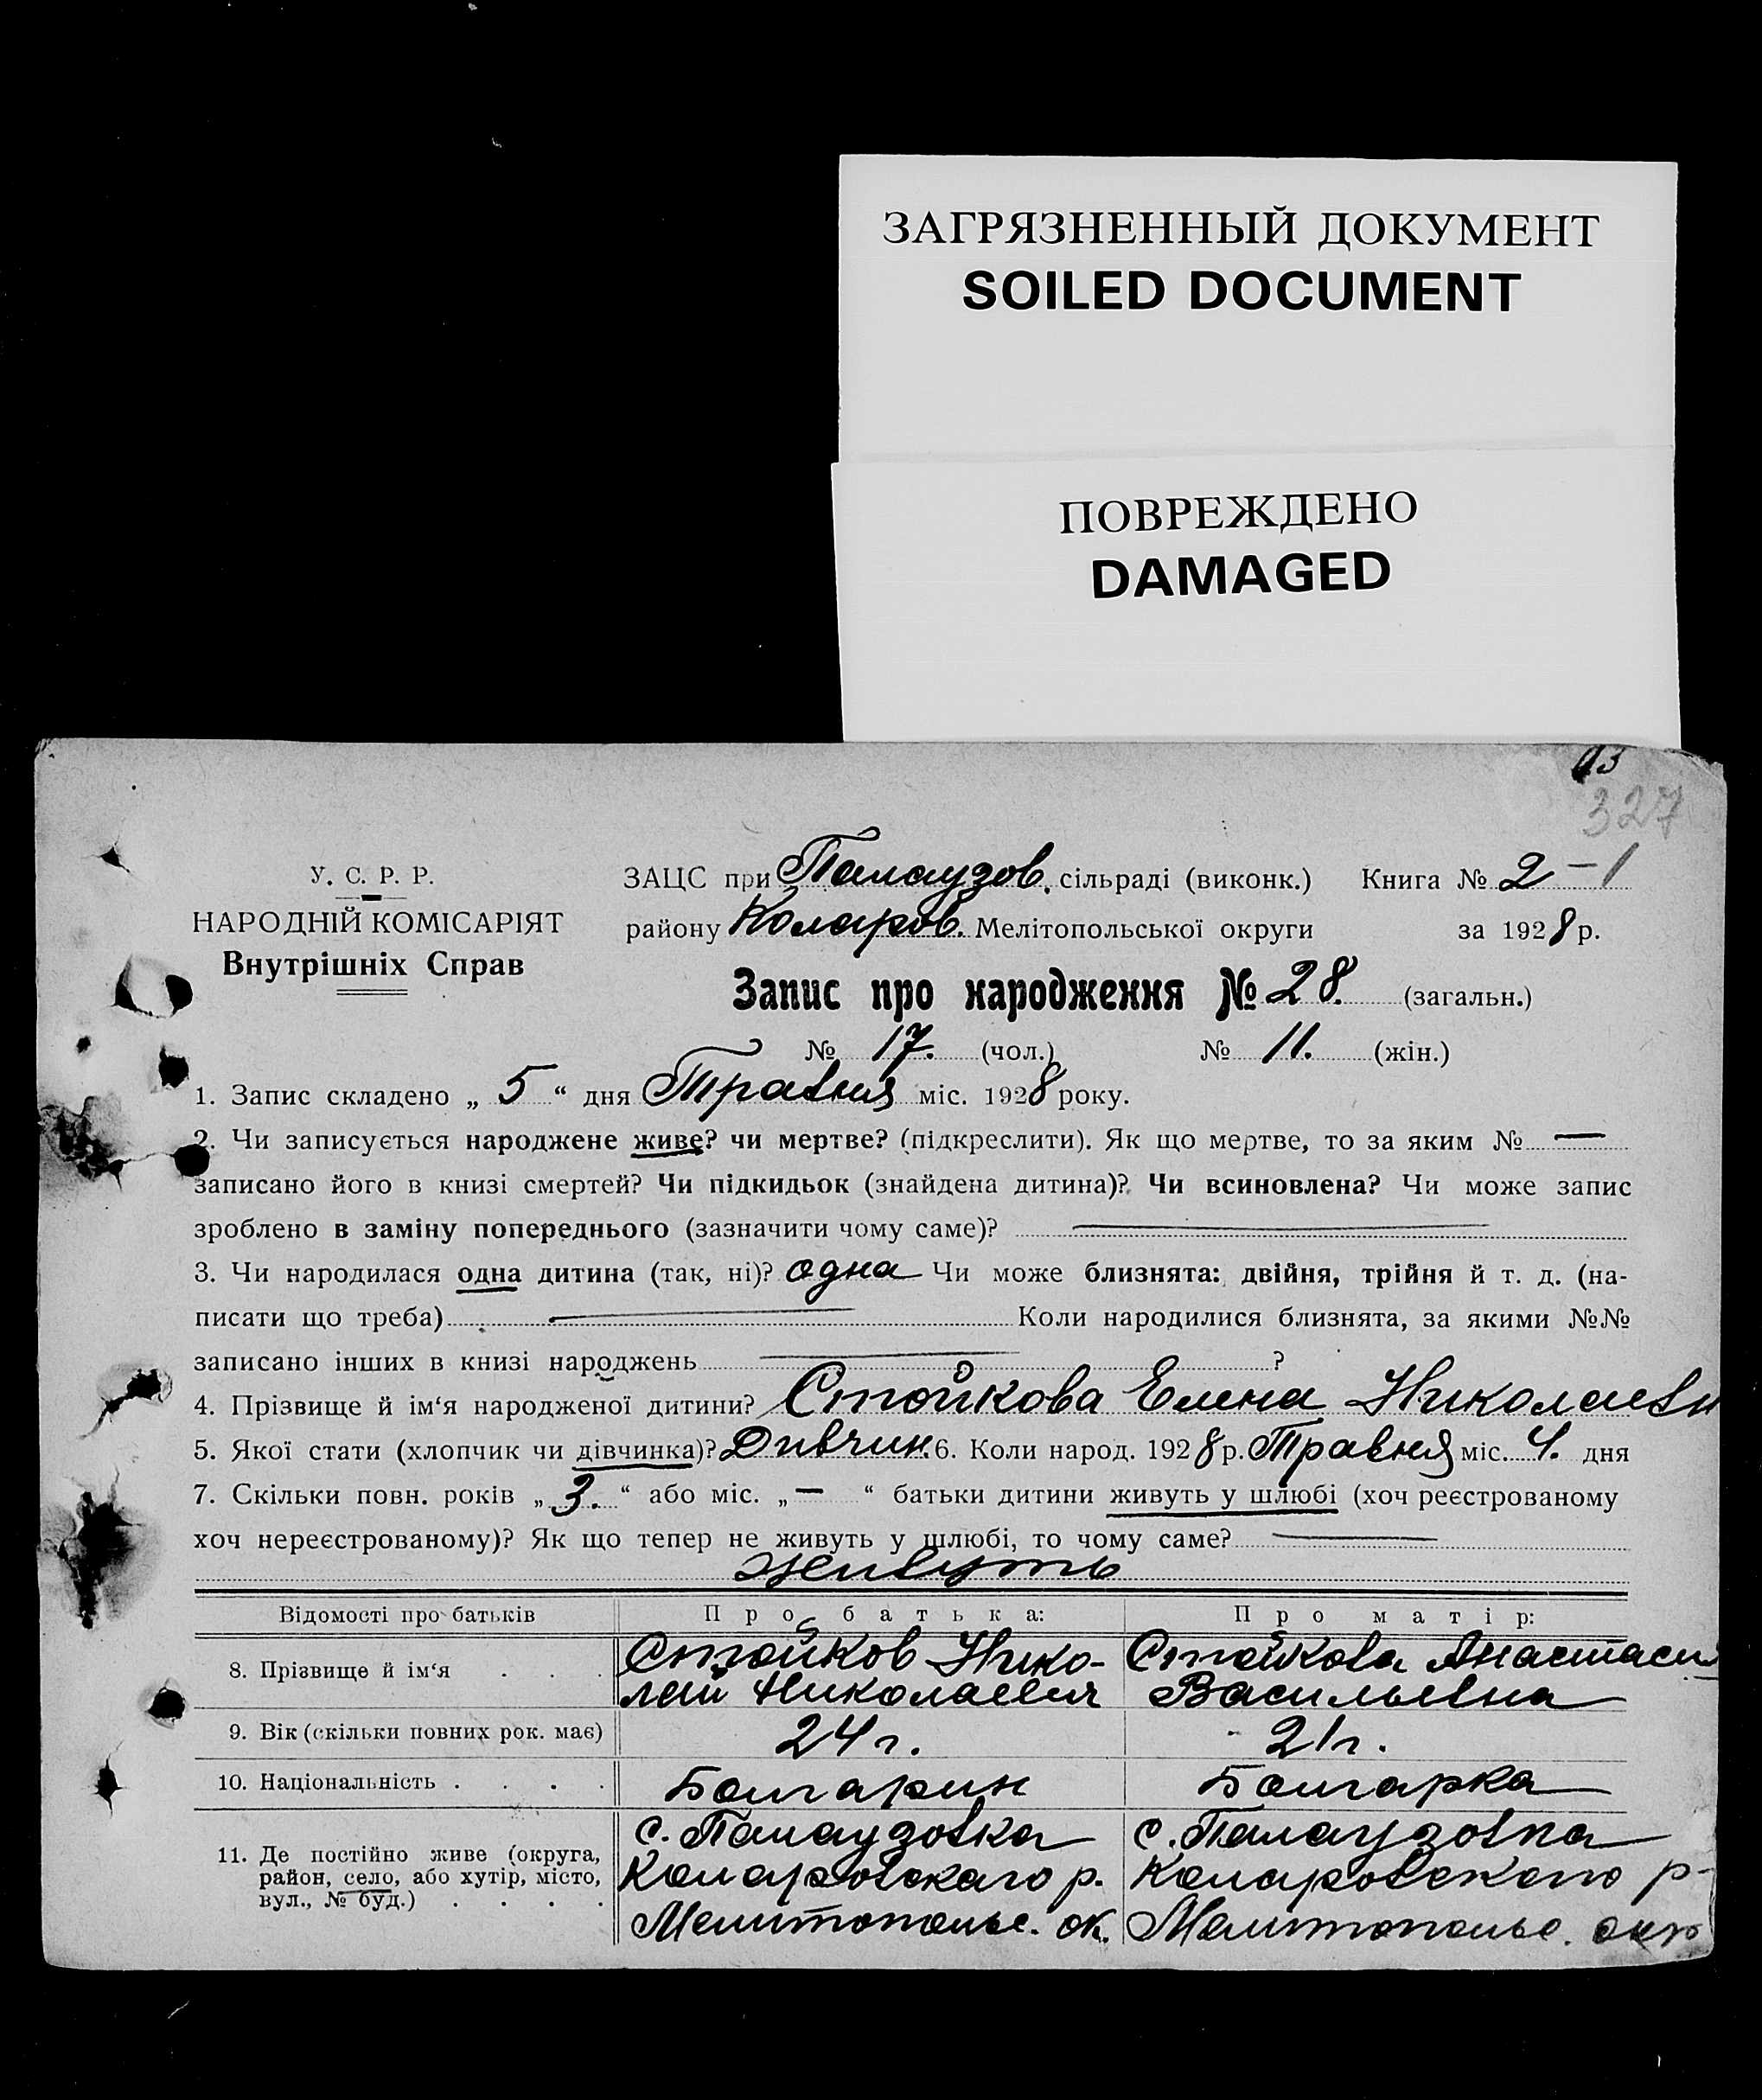 ЗАГРЯЗНЕННЫЙ ДОКУМЕНТ
SOILED DOCUMENT
ПОВРЕЖДЕНО
DAMAGED
93
327
У. С. Р. Р.
НАРОДНІЙ КОМІСАРІЯТ
Внутрішніх Справ
ЗАЦС при Палаузов. сільраді (виконк.) Книга № 2 – 1
району Коларов. Мелітопольської округи за 1928 р.
Запис про народження № 28. (загальн.)
№ 17. (чол.) № 11. (жін.)
1. Запис складено „ 5 “ дня Травня міс. 1928 року.
2. Чи записується народжене живе? чи мертве? (підкреслити). Як що мертве, то за яким № —
записано його в книзі смертей? Чи підкидьок (знайдена дитина)? Чи всиновлена? Чи може запис
зроблено в заміну попереднього (зазначити чому саме)? —
3. Чи народилася одна дитина (так, ні)? одна Чи може близнята: двійня, трійня й т. д. (на-
писати що треба) — Коли народилися близнята, за якими №№
записано інших в книзі народжень — ?
4. Прізвище й ім‘я народженої дитини? Стойкова Елена Николаевн
5. Якої стати (хлопчик чи дівчинка)? Дивчин. 6. Коли народ. 1928 р. Травня міс. 4. дня
7. Скільки повн. років „ 3. “ або міс. „ — “ батьки дитини живуть у шлюбі (хоч реєстрованому
хоч нереєстрованому)? Як що тепер не живуть у шлюбі, то чому саме? —
живуть
Відомості про батьків Про батька: Про матір:
8. Прізвище й ім‘я . . . Стойков Нико- Стойкова Анастаси
лай Николаевич Васильевна
9. Вік (скільки повних рок. має) 24 г. 21 г.
10. Національність . . . . Болгарин Болгарка
11. Де постійно живе (округа, район, село, або хутір, місто, вул., № буд.) . . . . с. Палаузовка с. Палаузовка
Коларовскаго р. Коларовского р-
Мелитопольс. ок. Мелитопольс. окр